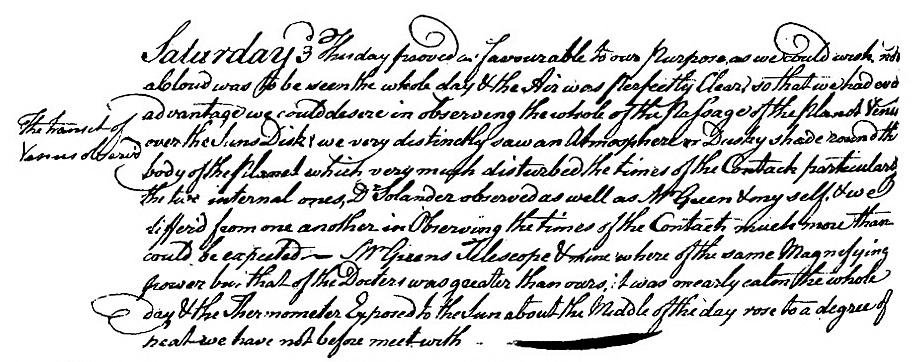 Saturday 3 This day prooved as favourable to our Purpose as we could wish, not
a Cloud was to be seen the whole day & the Air was perfectly Clear, so that we had every
advantage we could desire in observing the whole of the Passage of the Planet Venus
The transit of
Venus observd
over the Suns Disk: we very distinctly saw an Atmosphere or Dusky shade round the
body of the Planet which very much disturbed the times of the Contact particularly
the two internal ones, Dr Solander observed as well as Mr Green & my self, & we
differ'd from one another in Observing the times of the Contacts much more than
could be expected — Mr Greens Telescope & mine where of the same Magnifying
power but that of the Docters was greater than ours, it was nearly calm the whole
day & the Thermometer Exposed to the Sun about the Middle of the day rose to a degree of
heat we have not before meet with